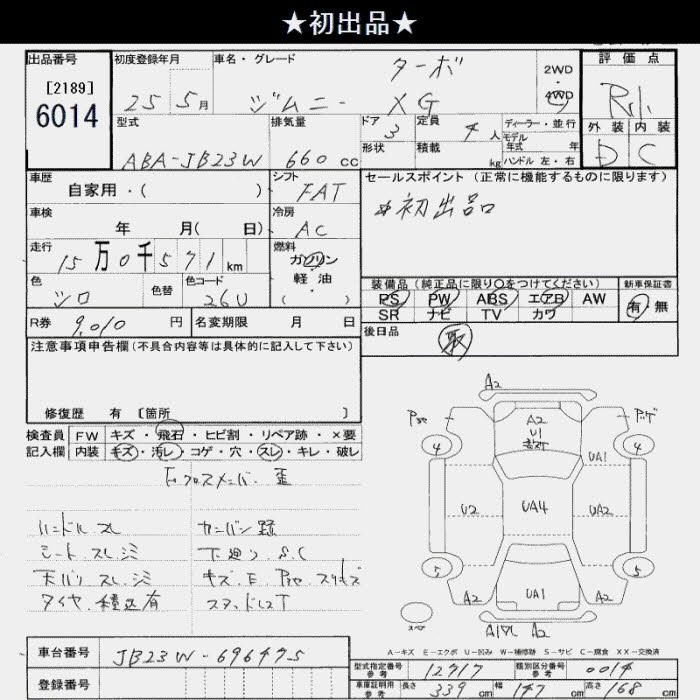 ★初出品★
出品番号
[2189]
6014
初度登録年月
25 5月
車名・グレード
ターボ
ジムニー XG
2WD
・
4WD
評価点
外装 内装
D C
型式
ABA-JB23W
排気量
660 cc
ドア
3
形状
定員
4 人
積載
kg
ディーラー・並行
モデル
年式 年
ハンドル 左・右
車歴
自家用・( )
シフト
FAT
車検
年 月( 日)
冷房
AC
走行
15万0千571km
燃料
ガソリン
軽油
( ・ )
色
シロ
色替
色コード
26U
R券 9,010 円
名変期限 月 日
セールスポイント(正常に機能するものに限ります)
初出品
装備品(純正品に限り○をつけてください)
新車保証書
PS PW ABS エアB AW
SR ナビ TV カワ
有 無
後日品
取
注意事項申告欄(不具合内容等は具体的に記入して下さい)
修復歴 有 [箇所 ]
検査員
記入欄
FW キズ・飛石・ヒビ割・リペア跡・×要
内装 キズ・汚レ・コゲ・穴・スレ・キレ・破レ
Fクロスメンバー歪
ハンドルスレ カンバン跡
シートスレシミ 下廻りS.C
天バリスレシミ
タイヤ積込有
A2
4 4
A2
U1
UA1
U2 UA4 UA2
5 5
A2 UA1 A2
スペア
A2
A-キズ E-エクボ U-凹み W-補修跡 S-サビ C-腐食 XX-交換済
車台番号 JB23W-696475
登録番号
型式指定番号
参考
12717
類別区分番号
参考
0014
車庫証明用
参考
長さ 339 cm 幅 147 cm 高さ 168 cm